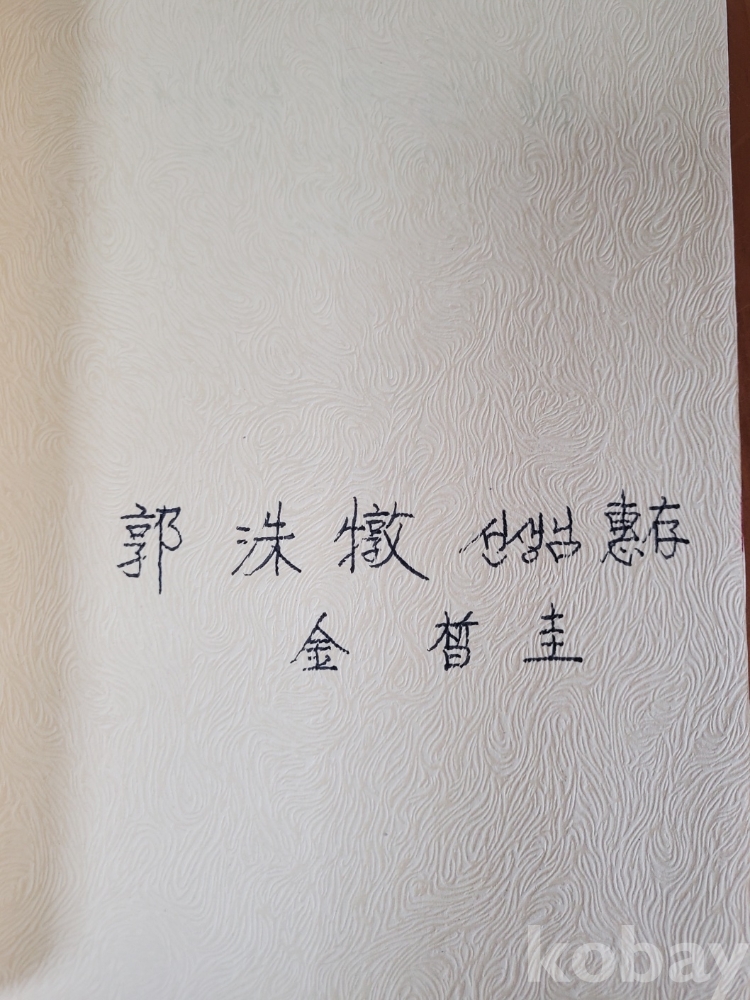 郭 洙 墩 선생님 惠存
金 晳 圭
kobay